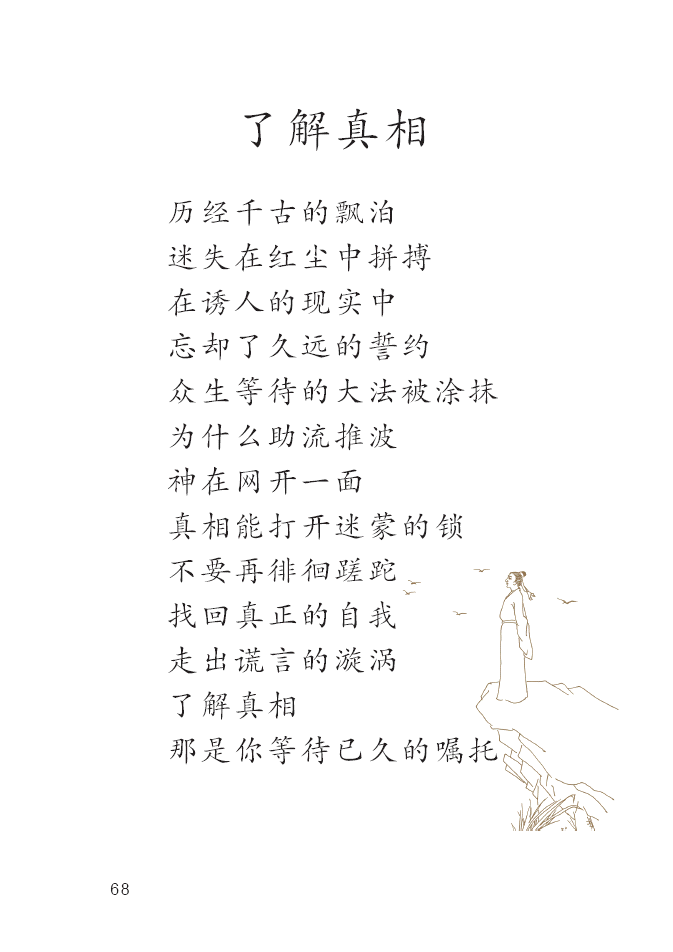 了解真相
历经千古的飘泊
迷失在红尘中拼搏
在诱人的现实中
忘却了久远的誓约
众生等待的大法被涂抹
为什么助流推波
神在网开一面
真相能打开迷蒙的锁
不要再徘徊蹉跎
找回真正的自我
走出谎言的漩涡
了解真相
那是你等待已久的嘱托
68